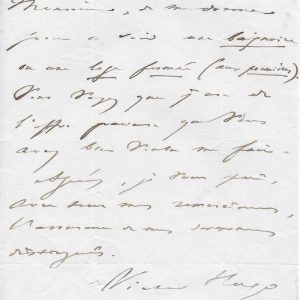 Monsieur, de me donner
pour ce soir une baignoire
ou une loge fermée (aux premières).
Vous voyez que j'use de
l'offre gracieuse que vous
avez bien voulu me faire.
Agréez, je vous prie,
avec tous mes remerciements,
l'assurance de mes sentiments
distingués.
Victor Hugo